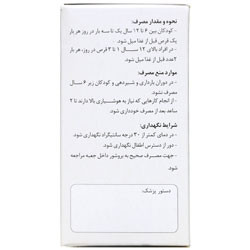 نحوه و مقدار مصرف:
- کودکان بین ۶ تا ۱۲ سال یک تا سه بار در روز هر بار
یک قرص قبل از غذا میل شود.
- در افراد بالای ۱۲ سال ۱ تا ۳ قرص در روز، هر بار
۲عدد قبل از غذا میل شود.
موارد منع مصرف:
- در دوران بارداری و شیردهی و کودکان زیر ۶ سال
مصرف نشود.
- از انجام کارهایی که نیاز به هوشیاری بالا دارند تا ۲
ساعت بعد از مصرف خودداری شود.
شرایط نگهداری:
- در دمای کمتر از ۳۰ درجه سانتیگراد نگهداری شود.
- دور از دسترس اطفال نگهداری شود.
- جهت مصرف صحیح به بروشور داخل جعبه مراجعه
شود.
دستور پزشک: